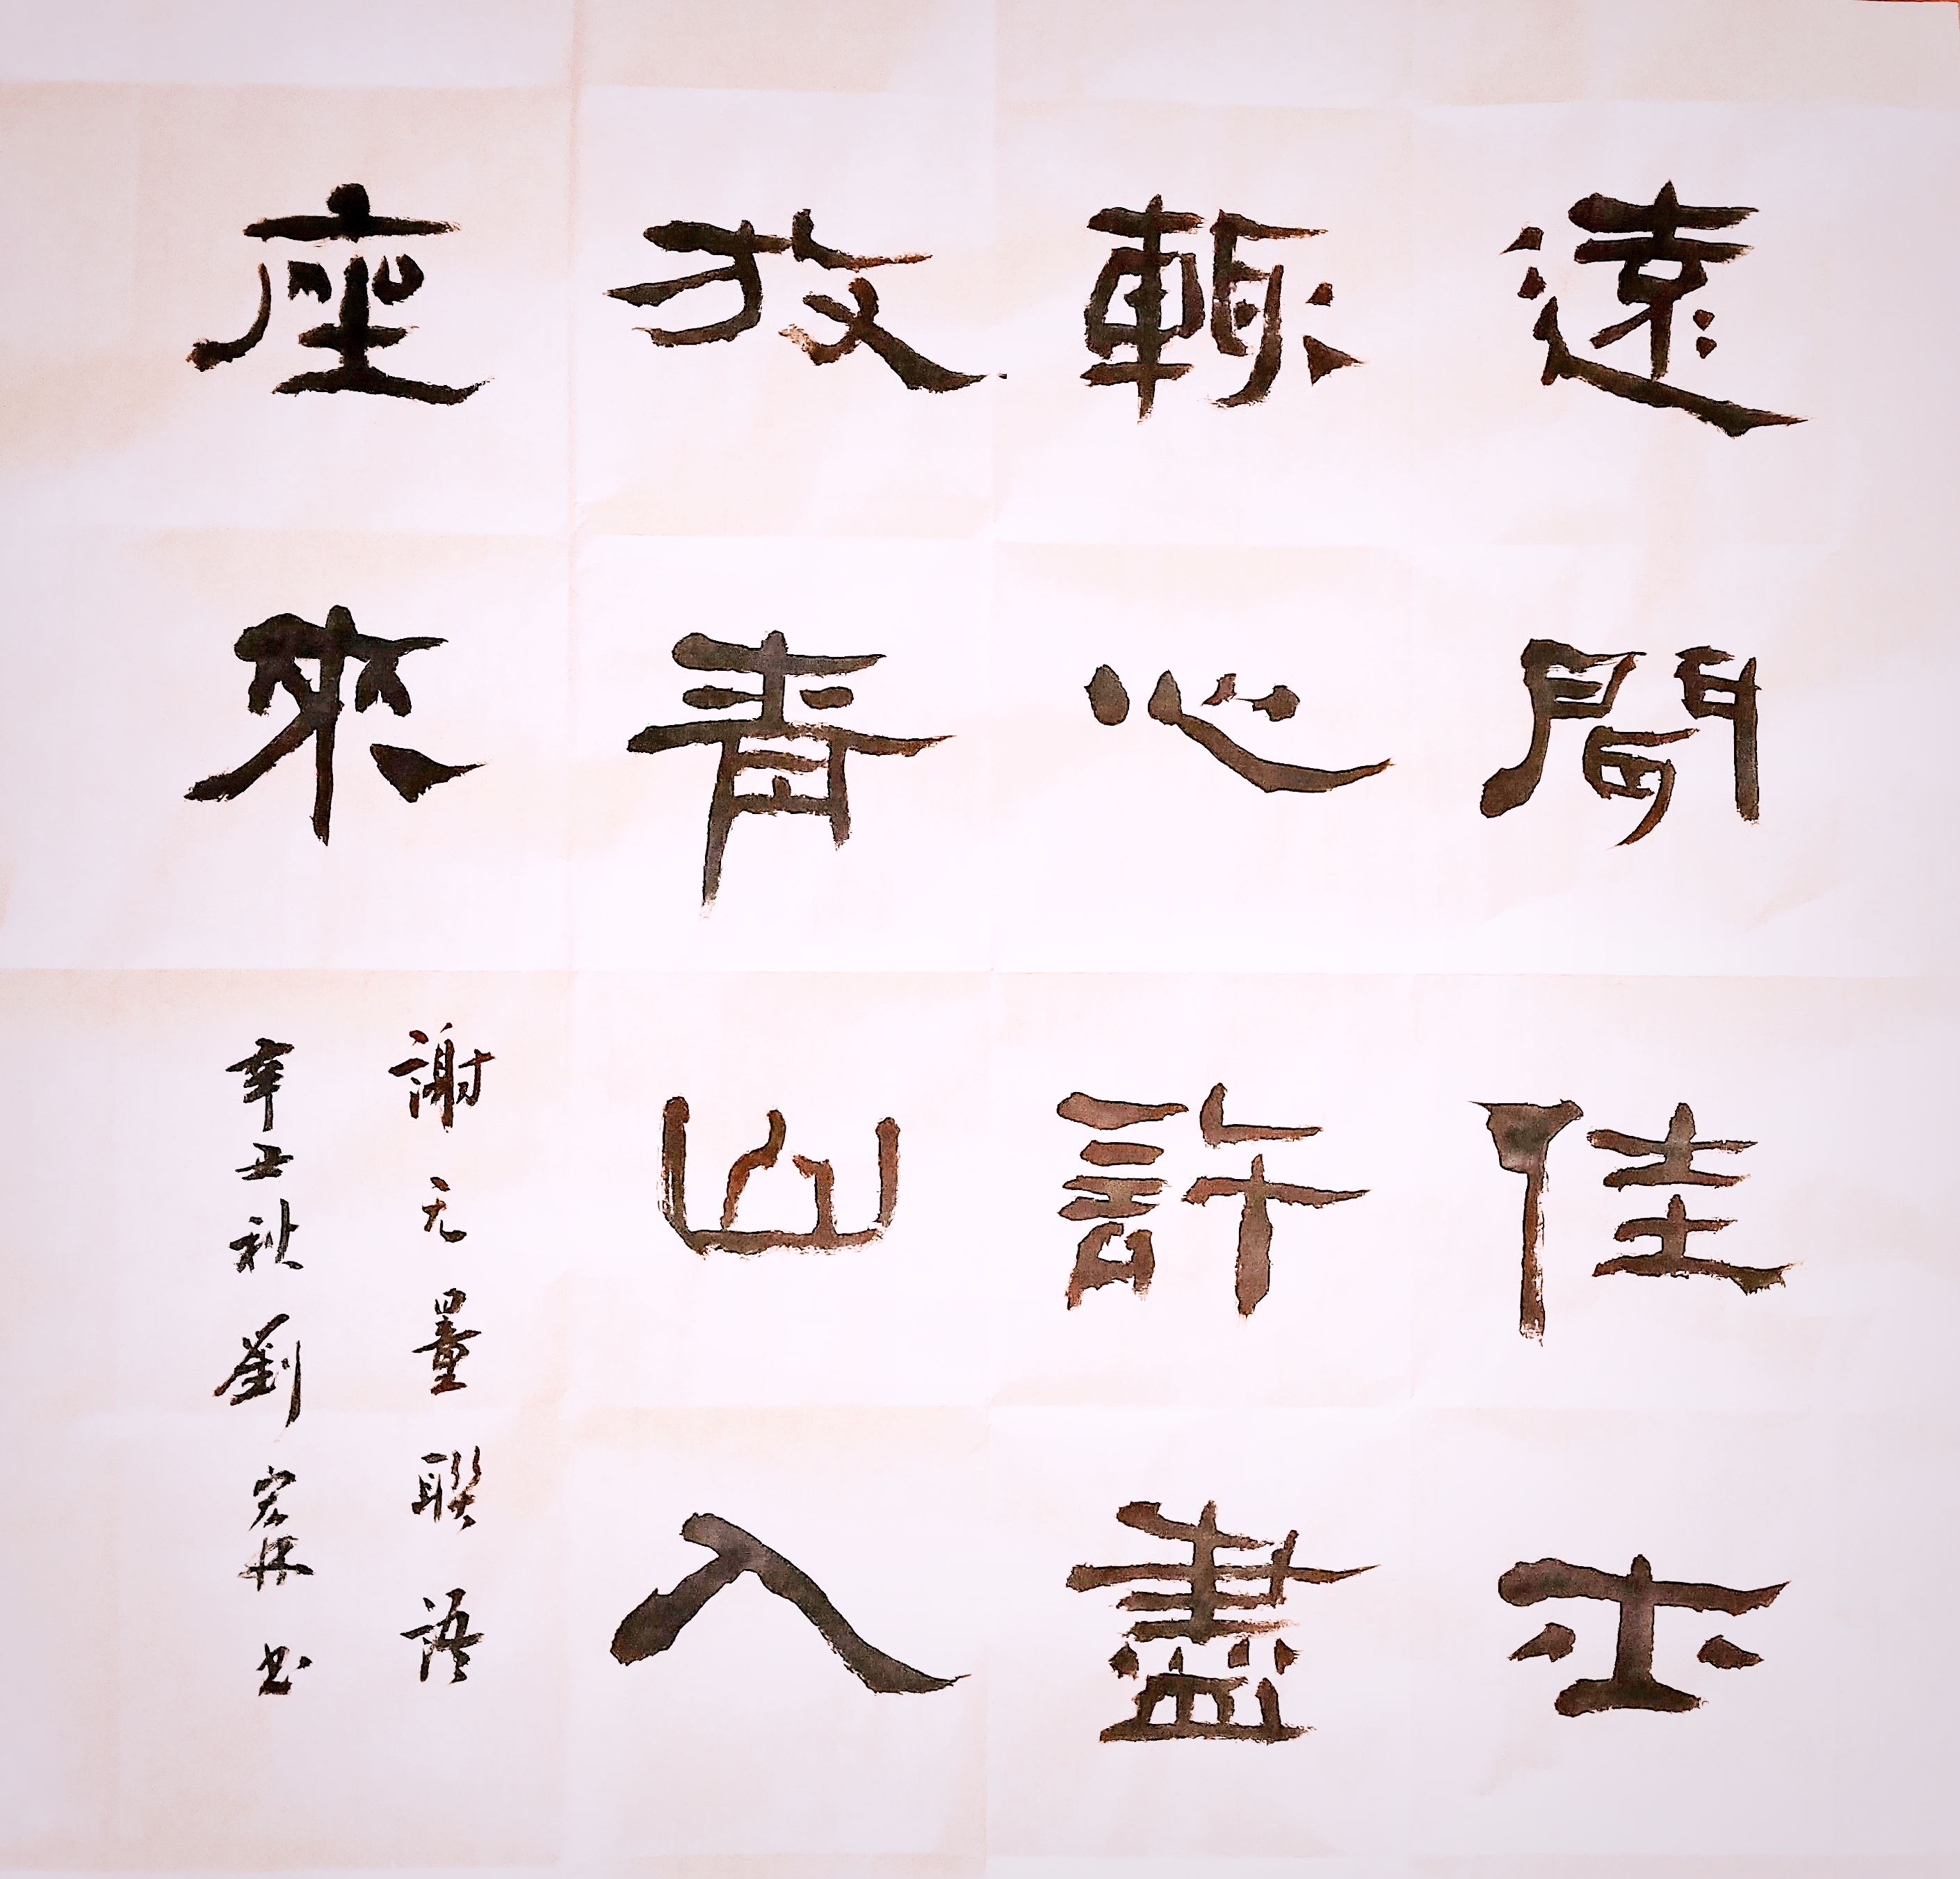 遠聞佳士
輒心許盡
放青山入
座來
謝无量聯語
辛丑秋劉宏书